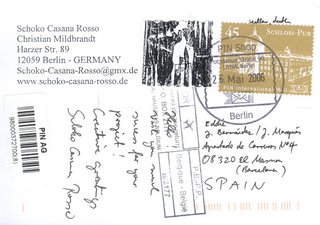 Schoko Casana Rosso
Christian Mildbrandt
Harzer Str. 89
12059 Berlin - GERMANY
Schoko-Casana-Rosso@gmx.de
www.schoko-casana-rosso.de
45
SCHLOSS PUR
PIN Shop
26. Mai 2006
Berlin
PIN International
PIN AG
I wish you much
success for your
project!
Creative greetings
Schoko Casana Rosso
Bretagne - Belgie
J. Bermúdez / J. Marqués
Apartado de Correos Nº4
08320 el Masnou
(Barcelona)
SPAIN